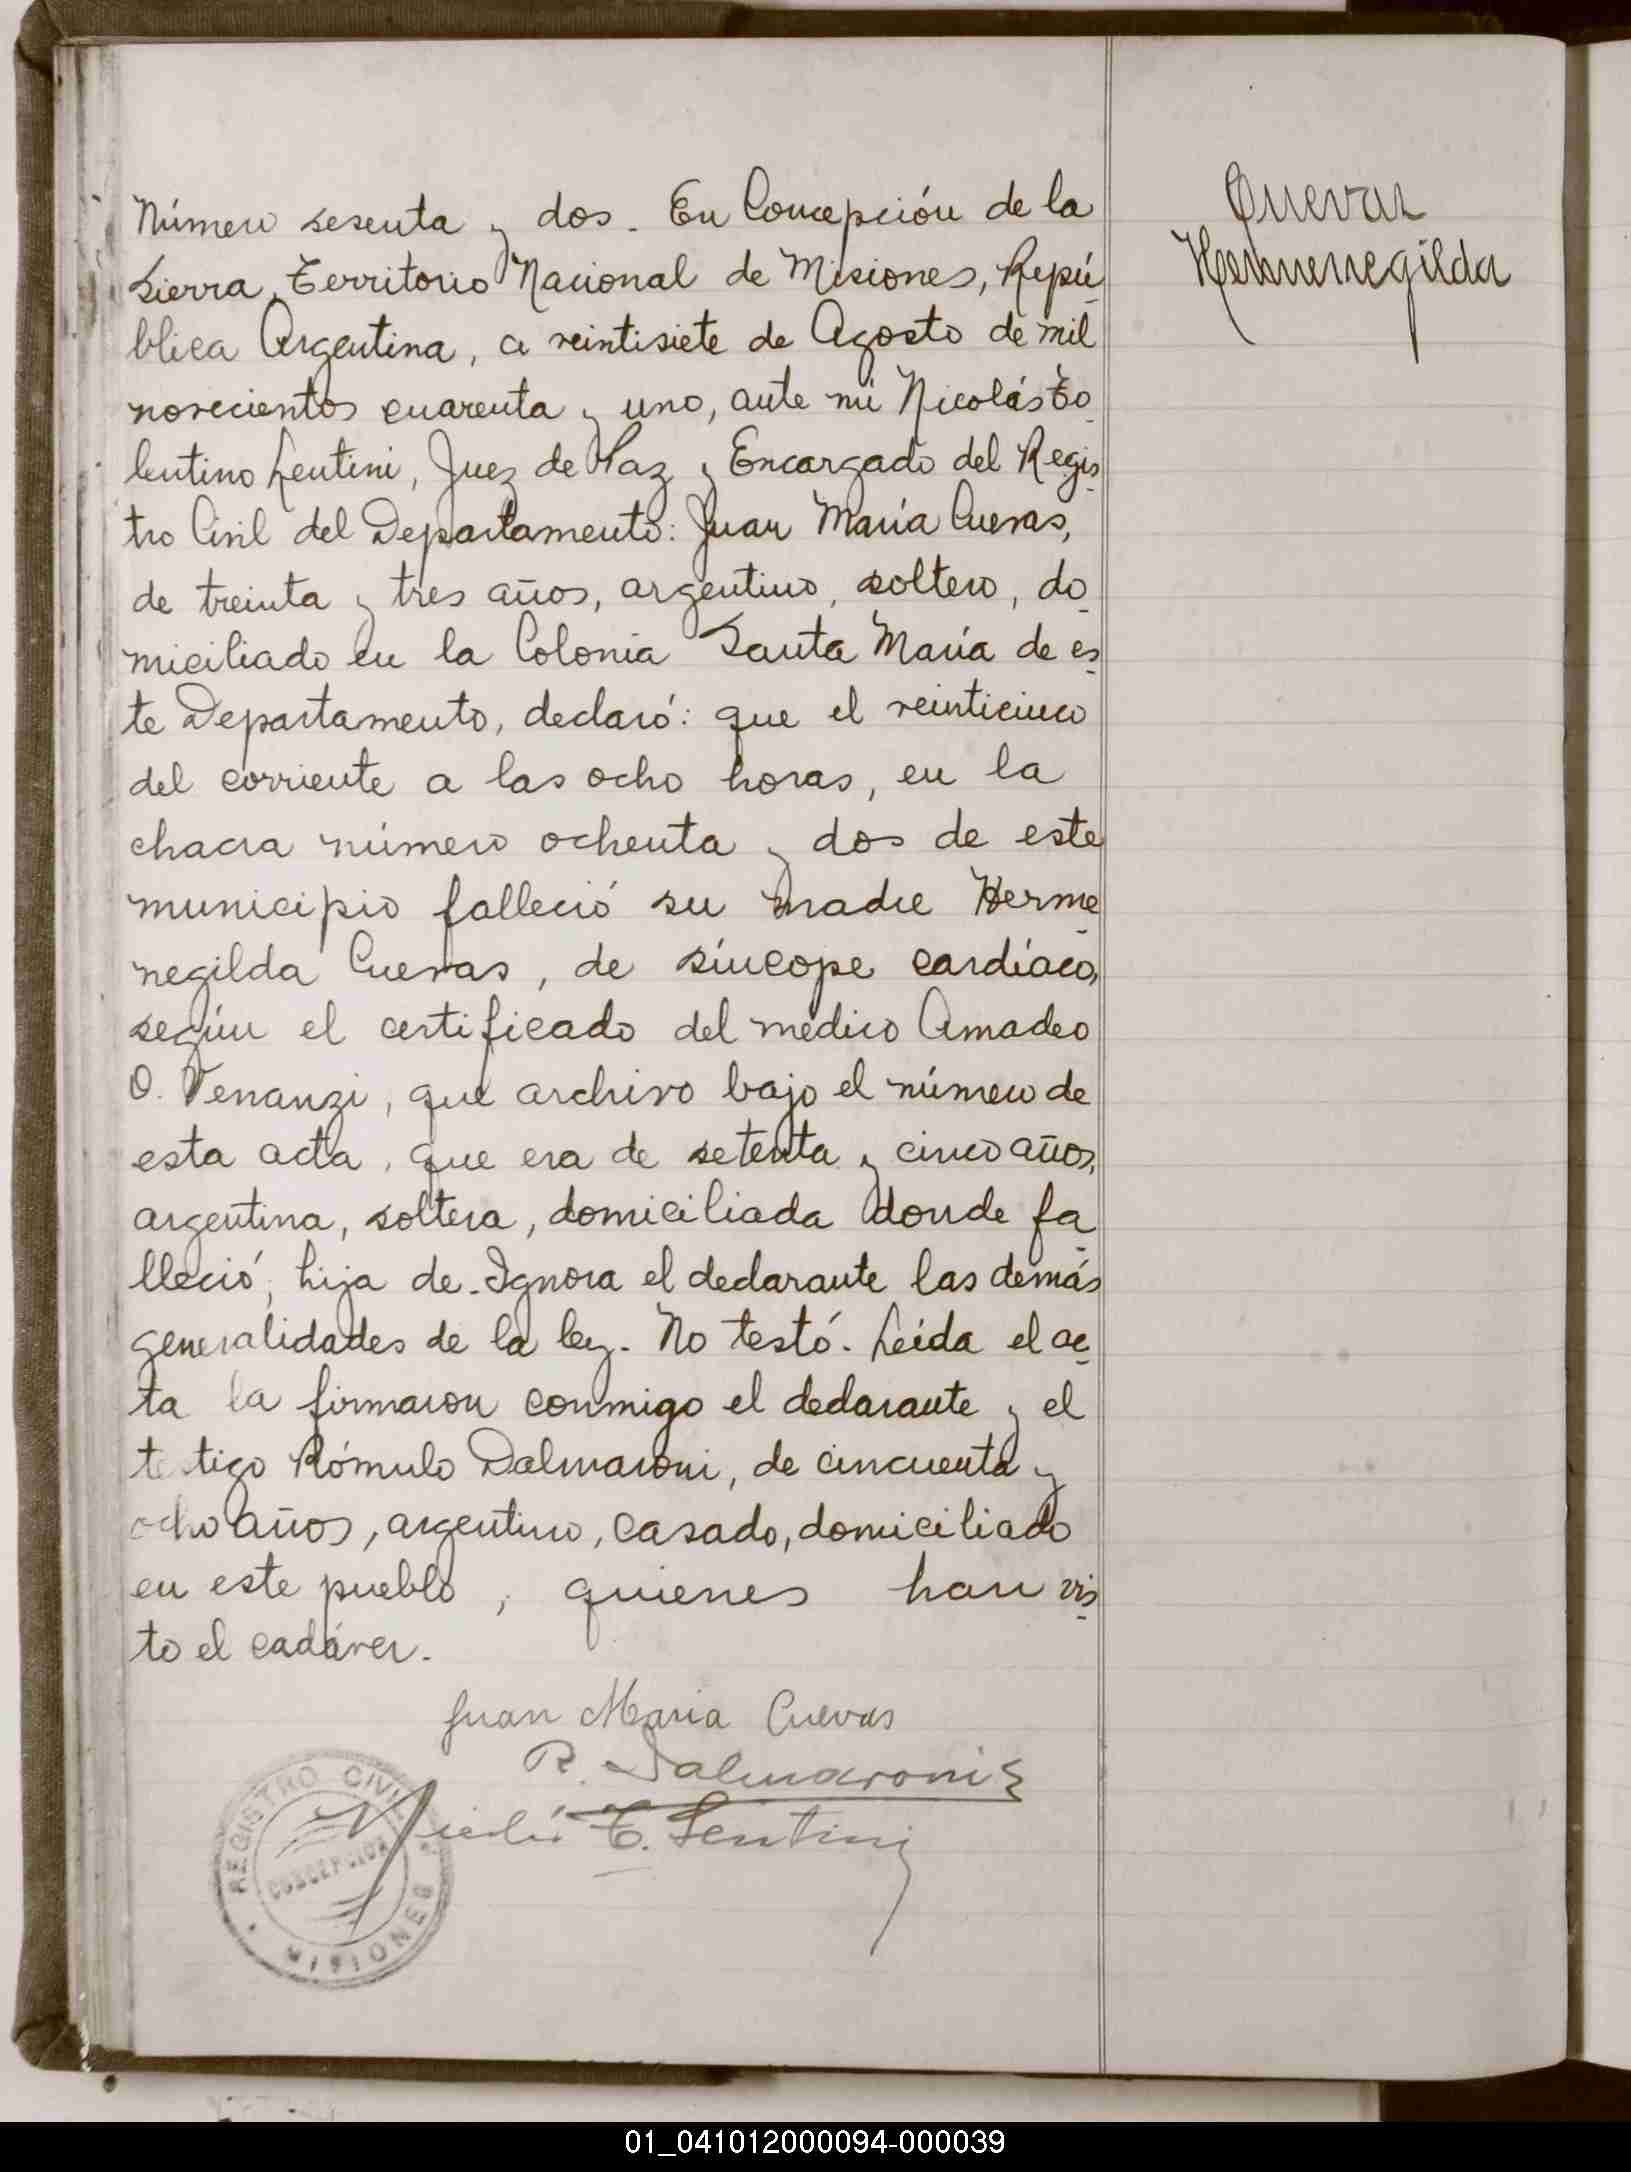 Número sesenta y dos. En Concepción de la
Sierra, Territorio Nacional de Misiones, Repú-
blica Argentina, a veintisiete de Agosto de mil
novecientos cuarenta y uno, ante mí Nicolás To-
lentino Lentini, Juez de Paz y Encargado del Regis-
tro Civil del Departamento: Juan María Cuevas,
de treinta y tres años, argentino, soltero, do-
miciliado en la Colonia Santa María de es-
te Departamento, declaró: que el veinticinco
del corriente a las ocho horas, en la
chacra número ochenta y dos de este
municipio falleció su madre Herme-
negilda Cuevas, de síncope cardíaco,
según el certificado del médico Amadeo
O. Venanzi, que archivo bajo el número de
esta acta, que era de setenta y cinco años,
argentina, soltera, domiciliada donde fa-
lleció, hija de. Ignora el declarante las demás
generalidades de la ley. No testó. Leída el ac-
ta la firmaron conmigo el declarante y el
testigo Rómulo Dalmaroni, de cincuenta y
ocho años, argentino, casado, domiciliado
en este pueblo, quienes han vis-
to el cadáver.
Juan Maria Cuevas
R. Dalmaroni
Nicolás T. Lentini
REGISTRO CIVIL
CONCEPCION
MISIONES
Cuevas
Hermenegilda
01_041012000094-000039